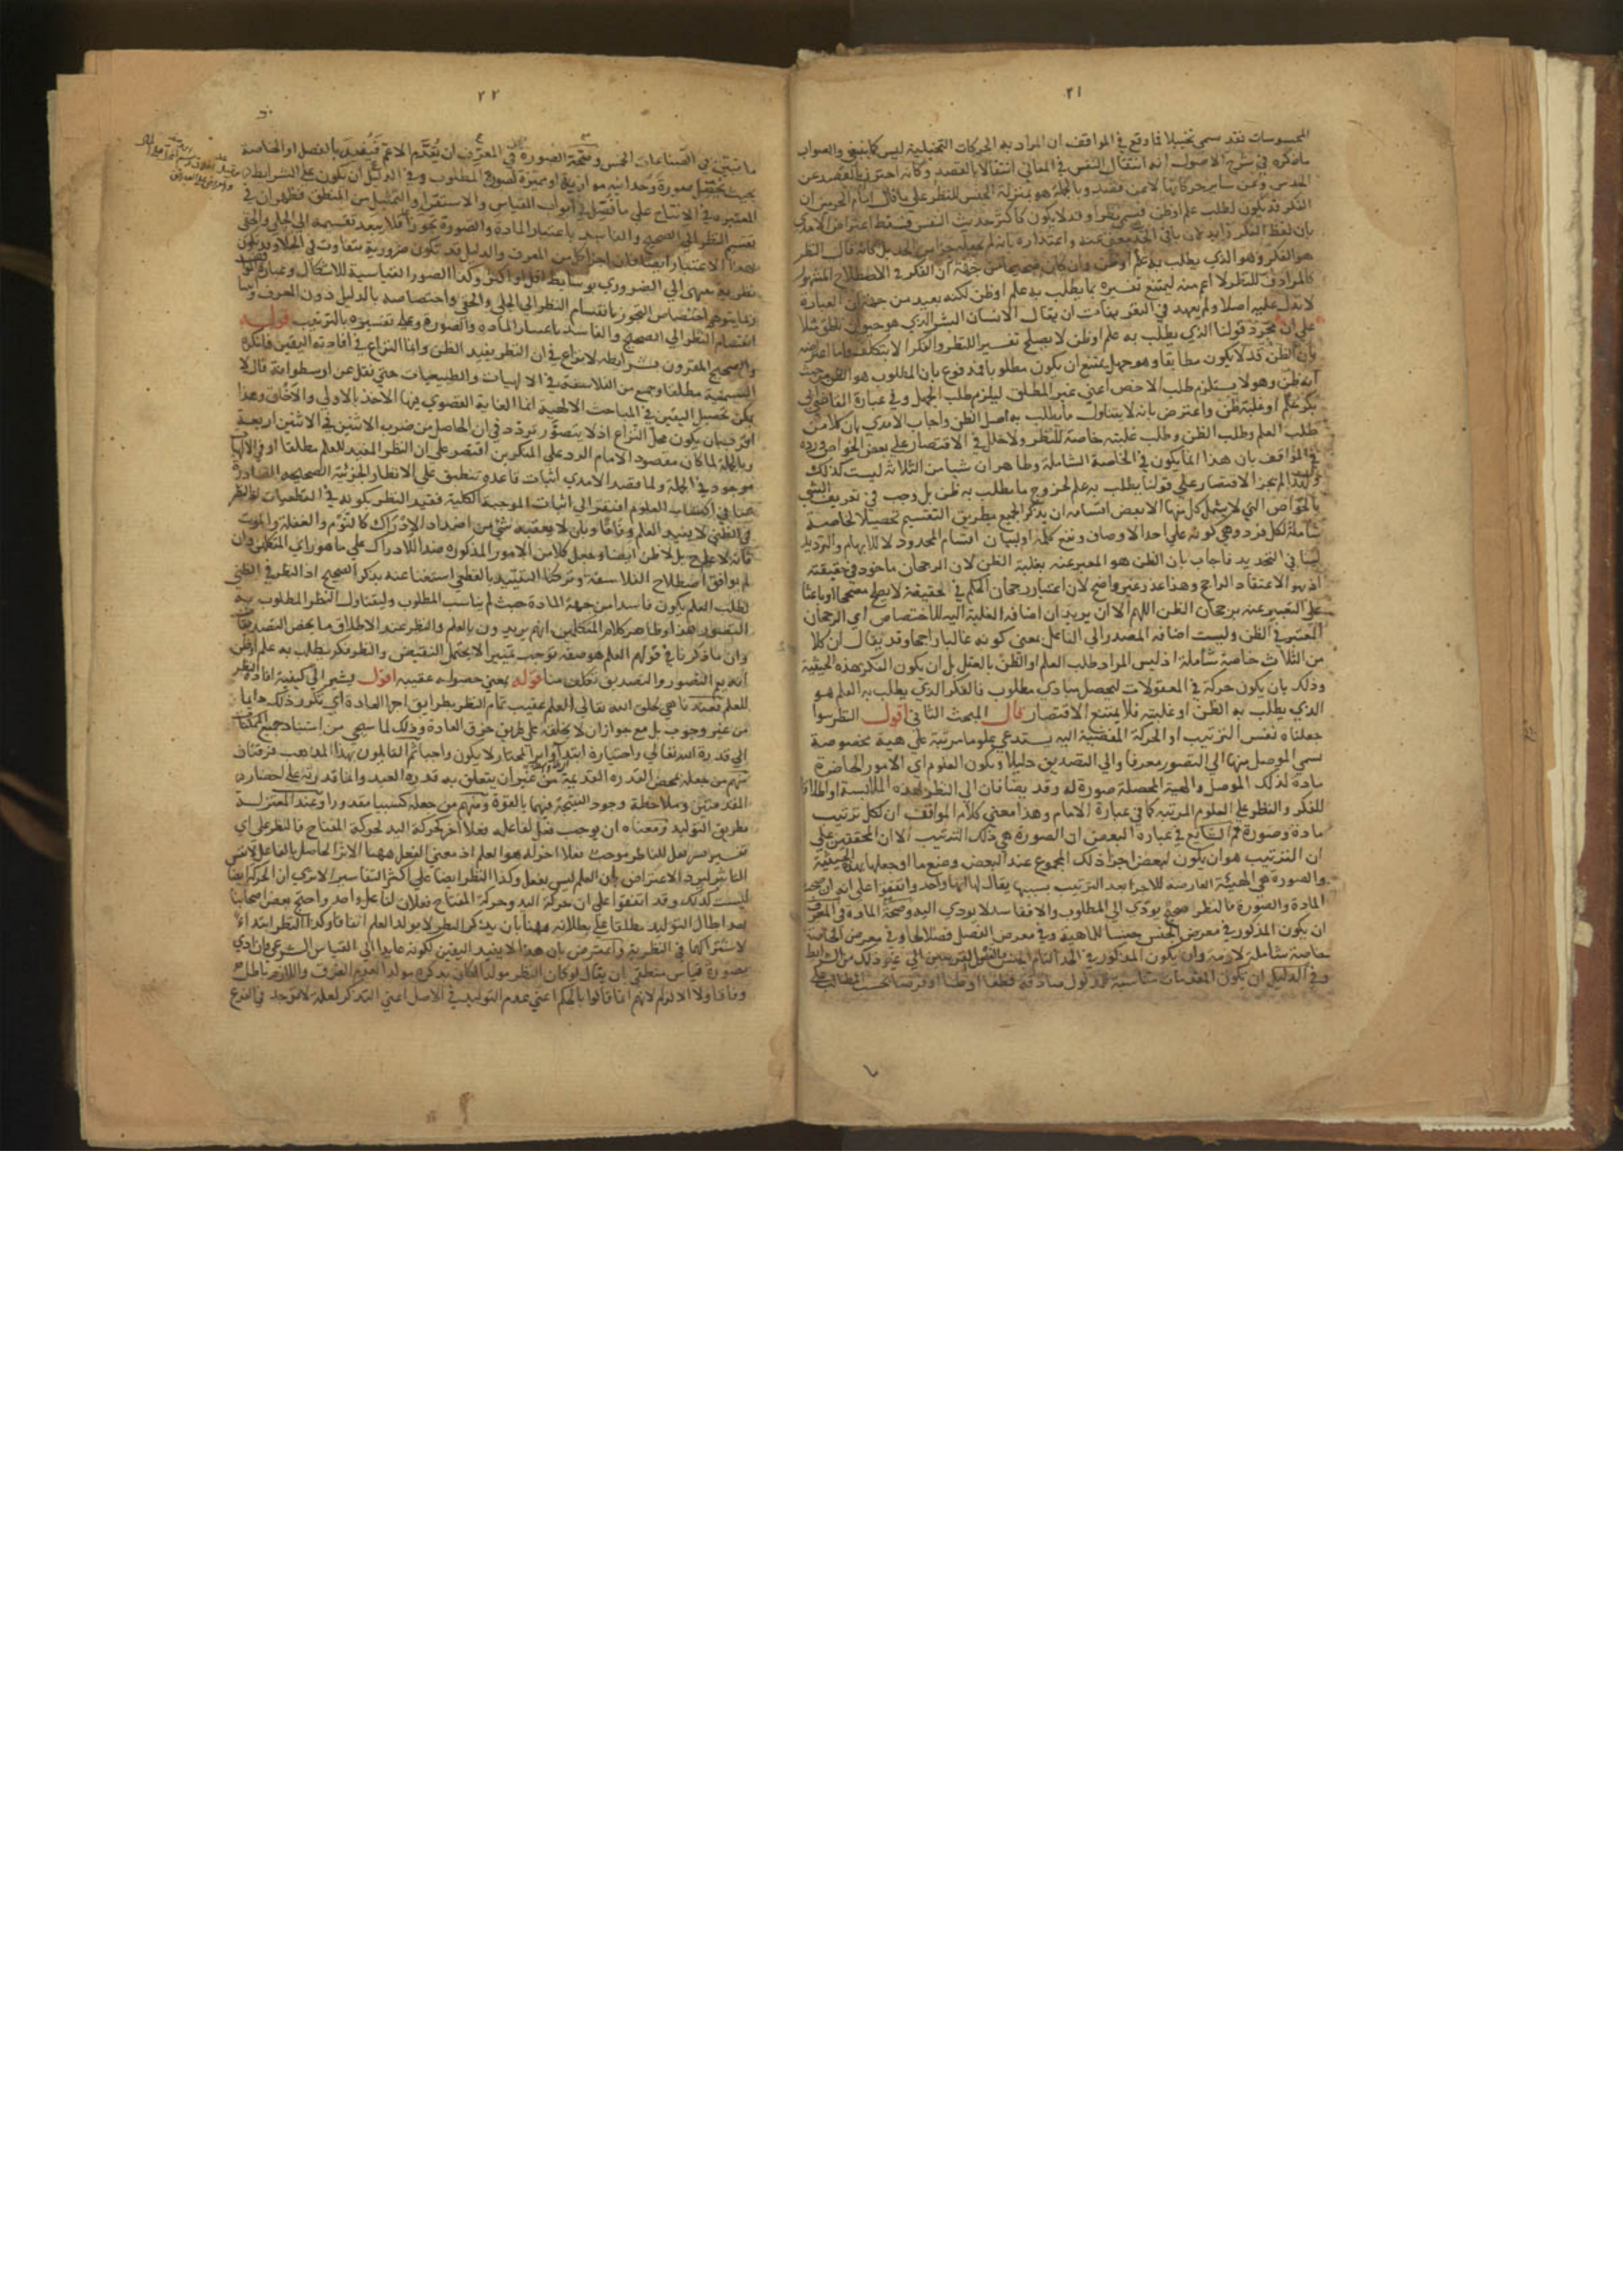 ٢١
المحسوسات فقد يسمى تخييلا فما وقع في المواقف ان المراد به الحركات التخييلية ليس كما ينبغي والصواب
ما ذكره في شرح الاصول انه انتقال النفس في المعاني انتقالا بالقصد وكانه احترز بالقصد عن
الحدس وعن ساير حركاتها لا عن قصد وبالجملة هو بمنزلة الجنس للنظر علي ما قال امام الحرمين ان
الفكر قد يكون لطلب علم او ظن فيسمي نظرا وقد لا يكون كاكثر حديث النفس فسقط اعتراض الامدي
بان لفظ الفكر زايد لان باقي الحد مغن عنه واعتذاره بانه لم يجعله جزا من الحد بل كانه قال النظر
هو الفكر وهو الذي يطلب به علم او ظن وان كان صحيحا من جهة ان الفكر في الاصطلاح المشهور
كالمرادف للنظر لا اعم منه ليمتنع تفسيره بما يطلب به علم او ظن لكنه بعيد من جهة ان العبارة
لا تدل عليه اصلا ولم يعهد في التعريفات ان يقال الانسان البشر الذي هو حيوان ناطق مثلا
علي ان مجرد قولنا الذي يطلب به علم او ظن لا يصلح تفسيرا للنظر والفكر الا بتكلف واما اعتراضه
بان الظن قد لا يكون مطابقا وهو جهل يمتنع ان يكون مطلوبا فمدفوع بان المطلوب هو الظن من حيث
انه ظن وهو لا يستلزم طلب الاخص اعني غير المطلق ليلزم طلب الجهل وفي عبارة القاضي ابي
بكر علم او غلبة ظن واعترض بانه لا يتناول ما يطلب به اصل الظن واجاب الامدي بان كلا من
طلب العلم وطلب الظن وطلب غلبته خاصة للنظر ولا خلل في الاقتصار علي بعض الخواص ورده
في المواقف بان هذا انما يكون في الخاصة الشاملة وظاهر ان شيا من الثلاثة ليست كذلك
ولهذا لم يجز الاقتصار علي قولنا يطلب به علم لخروج ما يطلب به ظن بل وجب في تعريف الشي
بالخواص التي لا يشمل كل منها الا بعض اقسامه ان يذكر الجميع بطريق التقسيم تحصيلا لخاصة
شاملة لكل فرد وهي كونه علي احد الاوصاف ونقع كلمة او لبيان اقسام المحدود لا للابهام والترديد
لينافي التحديد فاجاب بان الظن هو المعبر عنه بغلبة الظن لان الرجحان ماخوذ في حقيقته
اذ هو الاعتقاد الراجح وهذا عذر غير واضح لان اعتبار رجحان الحكم في الحقيقة لا يصلح مصححا او باعثا
علي التعبير عنه برجحان الظن اللهم الا ان يريد ان اضافة الغلبة اليه للاختصاص اي الرجحان
المعتبر في الظن وليست اضافة المصدر الي الفاعل بمعني كونه غالبا راجحا وقد يقال ان كلا
من الثلاث خاصة شاملة اذ ليس المراد طلب العلم او الظن بالفعل بل ان يكون الفكر بهذه الحيثية
وذلك بان يكون حركة في المعقولات لتحصل مبادي مطلوب فالفكر الذي يطلب به العلم هو
الذي يطلب به الظن او غلبته فلا يمتنع الاقتصار قال المبحث الثاني اقول النظر سوا
جعلناه نفس الترتيب او الحركة المفضية اليه يستدعي علوما مرتبة علي هية مخصوصة
يسمي الموصل منها الي التصور معرفا والي التصديق دليلا ويكون العلوم اي الامور الحاضرة
مادة لذلك الموصل والهية المحصلة صورة له وقد يضافان الي النظر لهذه الملابسة او اطلاقا
للفكر والنظر علي العلوم المرتبة كما في عبارة الامام وهذا معني كلام المواقف ان لكل ترتيب
مادة وصورة ثم الشايع في عبارة البعض ان الصورة هي ذلك الترتيب الا ان المحققين علي
ان الترتيب هو ان يكون لبعض اجزا ذلك المجموع عند البعض وضع ما او جعلها بهذه الحيثية
والصورة هي الهيئة العارضة للاجزا بعد الترتيب بسببها يقال لها انها واحد واتفقوا علي انه ان صحت
المادة والصورة فالنظر صحيح يودي الي المطلوب والا ففاسد لا يودي اليه وصحة المادة في المعرف
ان يكون المذكور في معرض الجنس جنسا للماهية وفي معرض الفصل فصلا لها وفي معرض الخاصة
خاصة شاملة لازمة وان يكون المذكور في الحد التام الجنس والفصل القريبين الي غير ذلك من الشرايط
وفي الدليل ان يكون المقدمات مناسبة للمدلول صادقة قطعا او ظنا او فرضا بحسب المطالب علي
٢٢
ما نبين في الصناعات الخمس وصحة الصورة في المعرف ان يقدم الاعم فيقيد بالفصل او الخاصة
بحيث يحصل صورة وحدانية موازية او مميزة لصورة المطلوب وفي الدليل ان يكون علي الشرايط
المعتبرة في الانتاج علي ما فصل في ابواب القياس والاستقرا والتمثيل من المنطق فظهر ان في
تقسيم النظر الي الصحيح والفاسد باعتبار المادة والصورة تجوزا فلا يبعد تقسيمه الي الجلي والخفي
بهذا الاعتبار ايضا فان اجزا كل من المعرف والدليل قد تكون ضرورية تتفاوت في الجلا وقد يكون
نظرية تنتهي الي الضروري بوسايط اقل او اكثر وكذا الصور القياسية للاشكال وعبارة
ربما يتوهم اختصاص التجوز بانقسام النظر الي الجلي والخفي واختصاصه بالدليل دون المعرف
انقسام النظر الي الصحيح والفاسد باعتبار المادة والصورة وعلي تفسيره بالترتيب قوله
والصحيح المقرون بشرايطه لا نزاع في ان النظر يفيد الظن وانما النزاع في افادته اليقين فانكره
السمنية مطلقا وجمع من الفلاسفة في الالهيات والطبيعيات حتي نقل عن ارسطو انه قال لا
يمكن تحصيل اليقين في المباحث الالهية انما الغاية القصوي فيها الاخذ بالاولي والاخلق وهذا
اقرب بان يكون محل النزاع اذ لا يتصور تردد في ان الحاصل من ضرب الاثنين في الاثنين اربعة
وبالجملة لما كان مقصود الامام الرد علي المنكرين اقتصر علي ان النظر المفيد للعلم مطلقا او في الالهيات
موجود في الجملة ولما قصد الامدي اثبات قاعدة تنطبق علي الانظار الجزئية الصحيحة الصادرة
عنا في اكتساب العلوم افتقر الي اثبات الموجبة الكلية فقيد النظر بكونه في القطعيات لان النظر
في الظني لا يفيد العلم وفاقا وبان لا يعقبه شي من اضداد الادراك كالنوم والغفلة والموت
فانه لا علم ح بل لا ظن ايضا وجعل كلا من الامور المذكورة ضدا للادراك علي ما هو راي المتكلمين وان
لم يوافق اصطلاح الفلاسفة وتركنا التقييد بالقطعي استغنا عنه بذكر الصحيح اذ النظر في الظني
لطلب العلم يكون فاسدا من جهة المادة حيث لم يناسب المطلوب وليتناول النظر المطلوب به
التصور هذا وظاهر كلام المتكلمين انهم يريدون بالعلم والنظر عند الاطلاق ما يخص التصديقات
وان ما ذكرنا في قولهم العلم هو صفة توجب تمييزا لا يحتمل النقيض والنظر فكر يطلب به علم او ظن
انه يعم التصور والتصديق تكلف منا قوله يعني حصوله عقيبه اقول يشير الي كيفية افادة النظر
للعلم فعندنا هي بخلق الله تعالي العلم عقيب تمام النظر بطريق اجرا العادة اي تكرر ذلك دايما
من غير وجوب بل مع جواز ان لا يخلقه علي طريق خرق العادة وذلك لما سيجي من استناد جميع الممكنات
الي قدرة الله تعالي واختياره ابتداء واثر المختار لا يكون واجبا ثم القايلون بهذا المذهب فرقتان
منهم من جعله بمحض القدرة القديمة من غير ان يتعلق به قدرة العبد وانما قدرته علي احضار
المقدمتين وملاحظة وجود النتيجة فيهما بالقوة ومنهم من جعله كسبيا مقدورا وعند المعتزلة
بطريق التوليد ومعناه ان يوجب فعل لفاعله فعلا اخر كحركة اليد لحركة المفتاح فالنظر علي اي
تفسير فسر فعل للناظر موجب فعلا اخر له هو العلم اذ معني الفعل ههنا الاثر الحاصل بالفاعل لا نفس
التاثير ليرد الاعتراض بان العلم ليس بفعل وكذا النظر ايضا علي اكثر التفاسير الا تري ان الحركة ايضا
ليست كذلك وقد اتفقوا علي ان حركة اليد وحركة المفتاح فعلان لفاعل واحد واحتج بعض اصحابنا
بعد ابطال التوليد مطلقا علي بطلانه ههنا بان تذكر النظر لا يولد العلم اتفاقا وكذا النظر ابتداء
لاشتراكهما في النظرية واعترض بان هذا لا يفيد اليقين لكونه عايدا الي القياس الشرعي وان ادي
بصورة قياس منطقي بان يقال لو كان النظر مولدا لكان تذكره مولدا لعدم الفرق واللازم باطل
وفاقا ولا الالزام لانهم انما قالوا بالحكم اعني بعدم التوليد في الاصل اعني التذكر لعلة لا توجد في الفرع